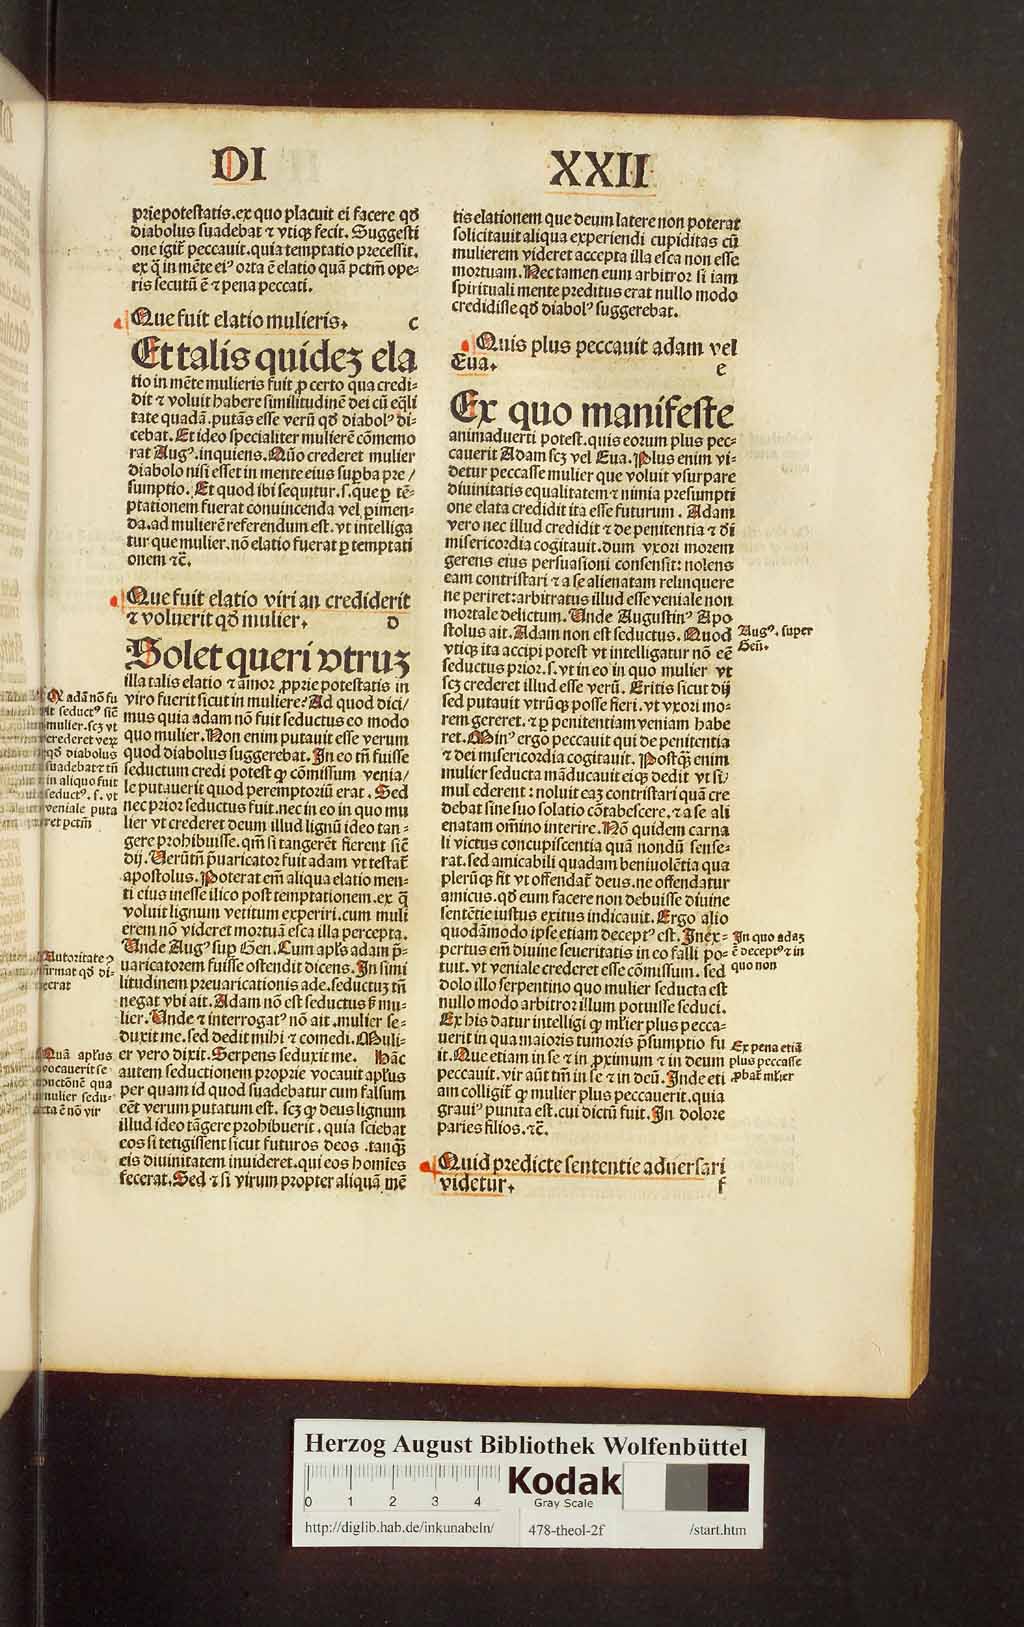 DI
XXII
prie potestatis. ex quo placuit ei facere qđ
diabolus suadebat ⁊ vtiqꝫ fecit. Suggesti
one igit᷑ peccauit. quia temptatio precessit.
ex q̄ in mēte ei⁹ orta ē elatio quā pctm̄ ope⸗
ris secutū ē ⁊ pena peccati.
Que fuit elatio mulieris. c
Et talis quidez ela
tio in mēte mulieris fuit ꝓ certo qua credi⸗
dit ⁊ voluit habere similitudinē dei cū eq̄li
tate quadā. putās esse verū qđ diabol⁹ di⸗
cebat. Et ideo specialiter mulierē cōmemo
rat Aug⁹. inquiens. Quō crederet mulier
diabolo nisi esset in mente eius suꝑba pre/
sumptio. Et quod ibi sequitur. s. que ꝑ tē⸗
ptationem fuerat conuincenda vel ꝑimen⸗
da. ad mulierē referendum est. vt intelliga
tur que mulier. nō elatio fuerat ꝑ temptati
onem ⁊c̄.
Que fuit elatio viri an crediderit
⁊ voluerit qđ mulier. d
Solet queri vtruz
illa talis elatio ⁊ amor ꝓprie potestatis in
viro fuerit sicut in muliere? Ad quod dici/
mus quia adam nō fuit seductus eo modo
quo mulier. Non enim putauit esse verum
quod diabolus suggerebat. In eo tn̄ fuisse
seductum credi potest ꝙ cōmissum venia/
le putauerit quod peremptoriū erat. Sed
nec prior seductus fuit. nec in eo in quo mu
lier vt crederet deum illud lignū ideo tan⸗
gere prohibuisse. qm̄ si tangerēt fierent sic̄
dij. Verūtn̄ p̄uaricator fuit adam vt testat᷑
apostolus. Poterat em̄ aliqua elatio men⸗
ti eius inesse ilico post temptationem. ex q̄
voluit lignum vetitum experiri. cum muli
erem nō videret mortuā esca illa percepta.
Unde Aug⁹ sup Gen. Cum apl̄s adam p̄⸗
uaricatorem fuisse ostendit dicens. In simi
litudinem preuaricationis ade. seductuȝ tn̄
negat vbi ait. Adam nō est seductus s̄ mu⸗
lier. Unde ⁊ interrogat⁹ nō ait. mulier se⸗
duxit me. sed dedit mihi ⁊ comedi. Muli⸗
er vero dixit. Serpens seduxit me. Hāc
autem seductionem proprie vocauit apl̄us
per quam id quod suadebatur cum falsum
eēt verum putatum est. scȝ ꝙ deus lignum
illud ideo tāgere prohibuerit. quia sciebat
eos si tetigissent sicut futuros deos. tanqꝫ
eis diuinitatem inuideret. qui eos homīes
fecerat. Sed ⁊ si virum propter aliquā mē
tis elationem que deum latere non poterat
solicitauit aliqua experiendi cupiditas cū
mulierem videret accepta illa esca non esse
mortuam. Nec tamen eum arbitror si iam
spirituali mente preditus erat nullo modo
credidisse qđ diabol⁹ suggerebat.
Quis plus peccauit adam vel
Eua. e
Ex quo manifeste
animaduerti potest. quis eorum plus pec⸗
cauerit Adam scȝ vel Eua. Plus enim vi⸗
detur peccasse mulier que voluit vsurpare
diuinitatis equalitatem ⁊ nimia presumpti
one elata credidit ita esse futurum. Adam
vero nec illud credidit ⁊ de penitentia ⁊ di
misericordia cogitauit. dum vxori morem
gerens eius persuasioni consensit: nolens
eam contristari ⁊ a se alienatam relinquere
ne periret: arbitratus illud esse veniale non
mortale delictum. Unde Augustin⁹ Apo
stolus ait. Adam non est seductus. Quod
vtiqꝫ ita accipi potest vt intelligatur nō eē
seductus prior. s. vt in eo in quo mulier vt
scȝ crederet illud esse verū. Eritis sicut dij
sed putauit vtrūqꝫ posse fieri. vt vxori mo⸗
rem gereret. ⁊ ꝑ penitentiam veniam habe
ret. Min⁹ ergo peccauit qui de penitentia
⁊ dei misericordia cogitauit. Postqꝫ enim
mulier seducta māducauit eiqꝫ dedit vt si/
mul ederent: noluit eaȝ contristari quā cre
debat sine suo solatio cōtabescere. ⁊ a se ali
enatam om̄ino interire. Nō quidem carna
li victus concupiscentia quā nondū sense⸗
rat. sed amicabili quadam beniuolētia qua
plerūqꝫ fit vt offendat᷑ deus. ne offendatur
amicus. qđ eum facere non debuisse diuine
sentētie iustus exitus indicauit. Ergo alio
quodāmodo ipse etiam decept⁹ est. Inex⸗
pertus em̄ diuine seueritatis in eo falli po⸗
tuit. vt veniale crederet esse cōmissum. sed
dolo illo serpentino quo mulier seducta est
nullo modo arbitror illum potuisse seduci.
Ex his datur intelligi ꝙ ml̄ier plus pecca⸗
uerit in qua maioris tumoris p̄sumptio fu
it. Que etiam in se ⁊ in ꝓximum ⁊ in deum
peccauit. vir aūt tm̄ in se ⁊ in deū. Inde eti
am colligit᷑ ꝙ mulier plus peccauerit. quia
graui⁹ punita est. cui dictū fuit. In dolore
paries filios. ⁊c̄.
Quid predicte sententie aduersari
videtur. f
adā nō fu
it seduct⁹ sic̄
mulier. scȝ vt
crederet veȝ
qđ diabolus
suadebat ⁊ tn̄
in aliquo fuit
seduct⁹. s. vt
veniale puta
ret pctm̄
Autoritate
firmat qđ di⸗
Quā apl̄us
vocauerit se
ductōnē qua
mulier sedu⸗
cta ē nō vir
Aug⁹. super
Gen̄.
In quo adaȝ
ē decept⁹ ⁊ in
quo non
Ex pena etiā
plus peccasse
ꝓbat᷑ ml̄ier
Herzog August Bibliothek Wolfenbüttel
0 1 2 3 4
Kodak
Gray Scale
http://diglib.hab.de/inkunabeln/ 478-theol-2f /start.htm